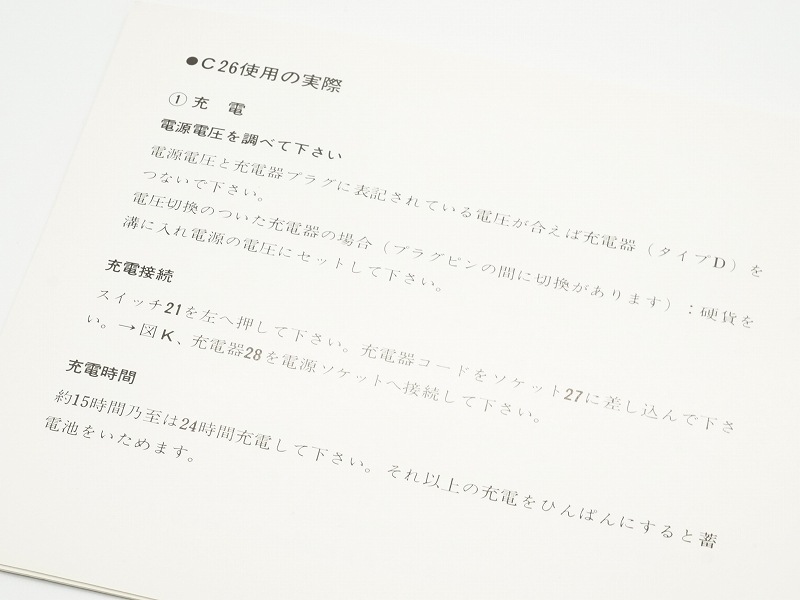 ●C26使用の実際
①充 電
電源電圧を調べて下さい
電源電圧と充電器プラグに表記されている電圧が合えば充電器(タイプD)を
つないで下さい。
電圧切換のついた充電器の場合(プラグピンの間に切換があります):硬貨を
溝に入れ電源の電圧にセットして下さい。
充電接続
スイッチ21を左へ押して下さい。充電器コードをソケット27に差し込んで下さ
い。→図K、充電器28を電源ソケットへ接続して下さい。
充電時間
約15時間乃至は24時間充電して下さい。それ以上の充電をひんぱんにすると蓄
電池をいためます。